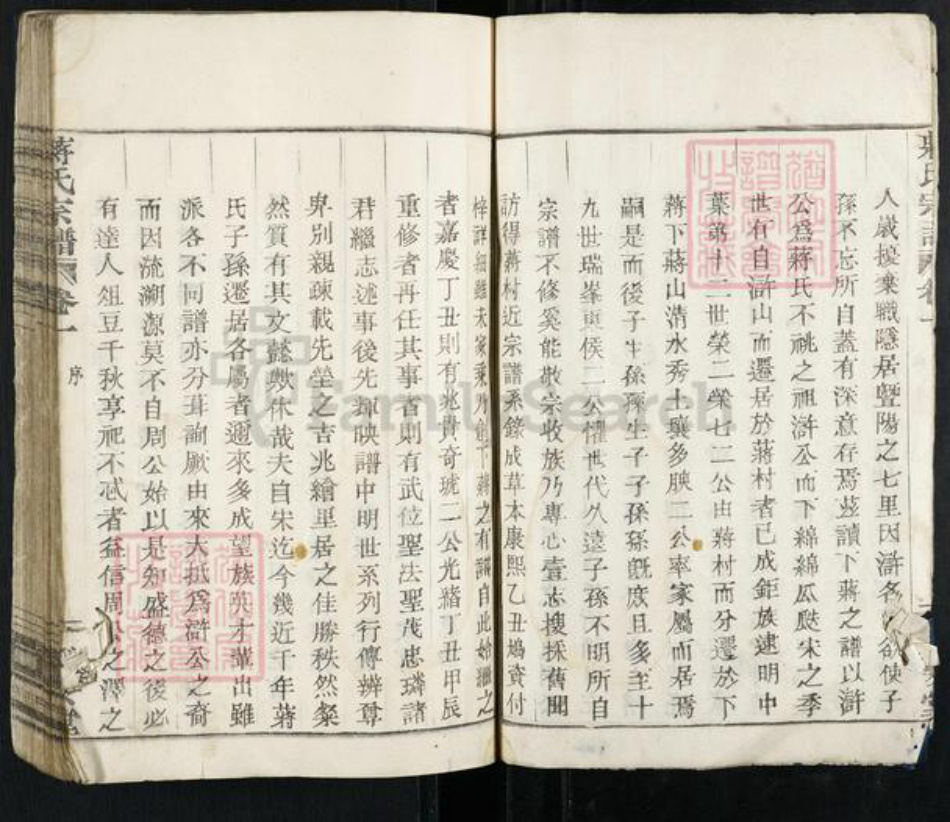 人嚴擾棄職隱居暨陽之七里因滸名 欲使子
孫不忘所自蓋有深意存焉茲讀下蔣之譜以滸
公爲蔣氏不祧之祖滸公而下綿綿瓜瓞宋之季
世有自滸山而遷居於蔣村者已成鉅族逮明中
葉第十二世榮二榮七二公由蔣村而分遷於下
蔣下蔣山清水秀土壤多腴二公率家屬而居焉
嗣是而後子生孫孫生子子孫孫旣庶且多至十
九世瑞峯東侯二公懼世代久遠子孫不明所自
宗譜不修奚能敬宗收族乃專心壹志搜採舊聞
訪得蔣村近宗譜系錄成草本康熙乙丑鳩資付
梓詳細雖未家乘乃創下蔣之有譜自此始繼之
者嘉慶丁丑則有兆貴奇琥二公光緒丁丑甲辰
重修者再任其事者則有武位聖法聖茂忠璘諸
君繼志述事後先輝映譜中明世系列行傳辨尊
卑別親疎載先塋之吉兆繪里居之佳勝秩然粲
然質有其文懿歟休哉夫自宋迄今幾近千年蔣
氏子孫遷居各屬者邇來多成望族英才輩出雖
派各不同譜亦分葺詢厥由來大抵爲滸公之裔
而因流溯源莫不自周公始以是知盛德之後必
有達人俎豆千秋享祀不忒者益信周公之澤之
蔣氏宗譜
卷一
序
FamilySearch